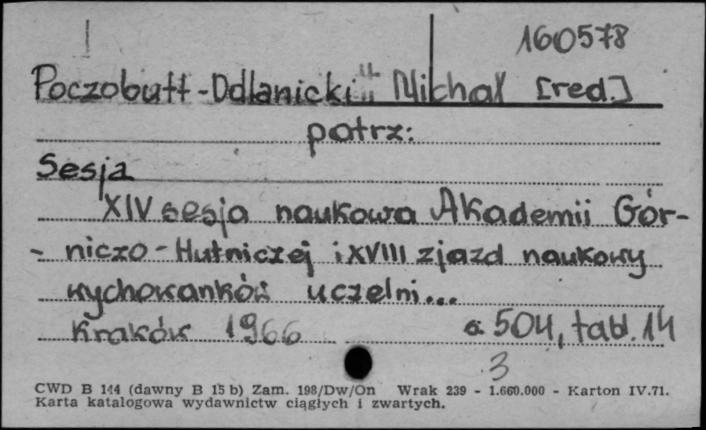 160578
Poczobutt-Odlanicki Michał [red.]
patrz:
Sesja
XIV sesja naukowa Akademii Gór-
- niczo-Hutniczej i XVIII zjazd naukowy
wychowanków uczelni...
Kraków 1966 s. 504, tabl. 14
3
CWD B 144 (dawny B 15 b) Zam. 198/Dw/On Wrak 239 - 1.660.000 - Karton IV.71.
Karta katalogowa wydawnictw ciągłych i zwartych.